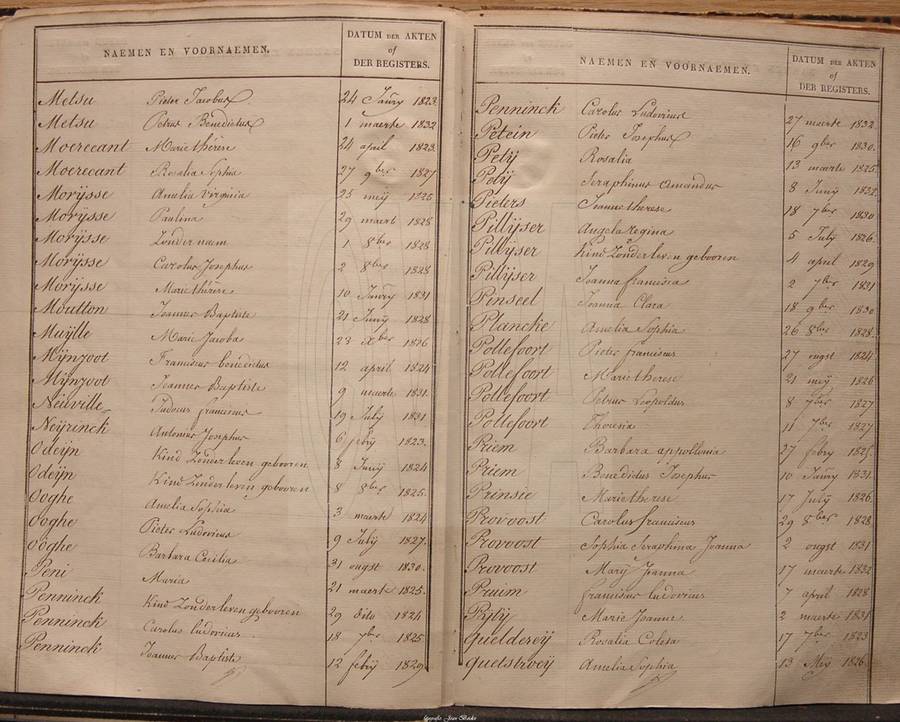 NAEMEN EN VOORNAEMEN.
DATUM DER AKTEN
of
DER REGISTERS.
Metsu Pieter Jacobus 24 Jaury 1823
Metsu Petrus Benedictus 1 maerte 1832
Moerecant Marie thérèse 24 april 1823
Moerecant Rosalia Sophia 27 9ber 1827
Morÿsse Amelia virginia 25 meÿ 1825
Morÿsse Paulina 29 maert 1828
Morÿsse Zonder naem 1 8ber 1828
Morÿsse Carolus Josephus 2 8ber 1828
Morÿsse Marie thérèse 10 Jaury 1831
Moutton Joannes Baptiste 21 Junÿ 1828
Muÿlle Marie Jacoba 23 Xber 1826
Mÿnzoot Franciscus benedictus 12 april 1824
Mÿnzoot Joannes Baptiste 9 maerte 1831
Neuville Judocus franciscus 19 July 1831
Neÿrinck Antonius Josephus 6 febrÿ 1823
Odeÿn Kind Zonder leven gebooren 8 Junÿ 1824
Odeÿn Kind Zonder leven gebooren 8 8ber 1825
Ooghe Amelia Sophia 3 maerte 1824
Ooghe Pieter Ludovicus 9 Julÿ 1827
Ooghe Barbara Cecilia 31 ougst 1830
Peni Maria 21 maerte 1825
Penninck Kind Zonder leven gebooren 29 dito 1824
Penninck Carolus ludovicus 18 7ber 1825
Penninck Joannes Baptiste 12 febrÿ 1829
NAEMEN EN VOORNAEMEN.
DATUM DER AKTEN
of
DER REGISTERS.
Penninck Carolus Ludovicus 27 maerte 1832
Petein Pieter Josephus 16 9ber 1830
Petÿ Rosalia 13 maerte 1825
Petÿ Seraphinus Amandus 8 Junÿ 1832
Pieters Jeanne therese 18 7ber 1830
Pillÿser Angela regina 5 July 1826
Pillÿser Kind Zonder leven gebooren 4 april 1829
Pillÿser Joanna francisca 2 7ber 1831
Pinseel Joanna Clara 18 9ber 1830
Plancke Amelia Sophia 26 8ber 1828
Pollefoort Pieter franciscus 27 ougst 1824
Pollefoort Marie therese 21 meÿ 1826
Pollefoort Petrus Leopoldus 8 7ber 1827
Pollefoort Theresia 11 7ber 1827
Priem Barbara appollonia 27 febry 1825
Priem Benedictus Josephus 10 Jaury 1831
Prinsie Marie therese 17 Julÿ 1826
Provoost Carolus franciscus 29 8ber 1828
Provoost Sophia Seraphina Joanna 2 ougst 1831
Provoost Marÿ Joanna 17 maerte 1832
Pruim franciscus ludovicus 7 april 1828
Marie Joanne 2 maerte 1831
Quelderÿ Rosalia Coleta 17 7ber 1823
Quetstroeÿ Amelia Sophia 13 Meÿ 1826